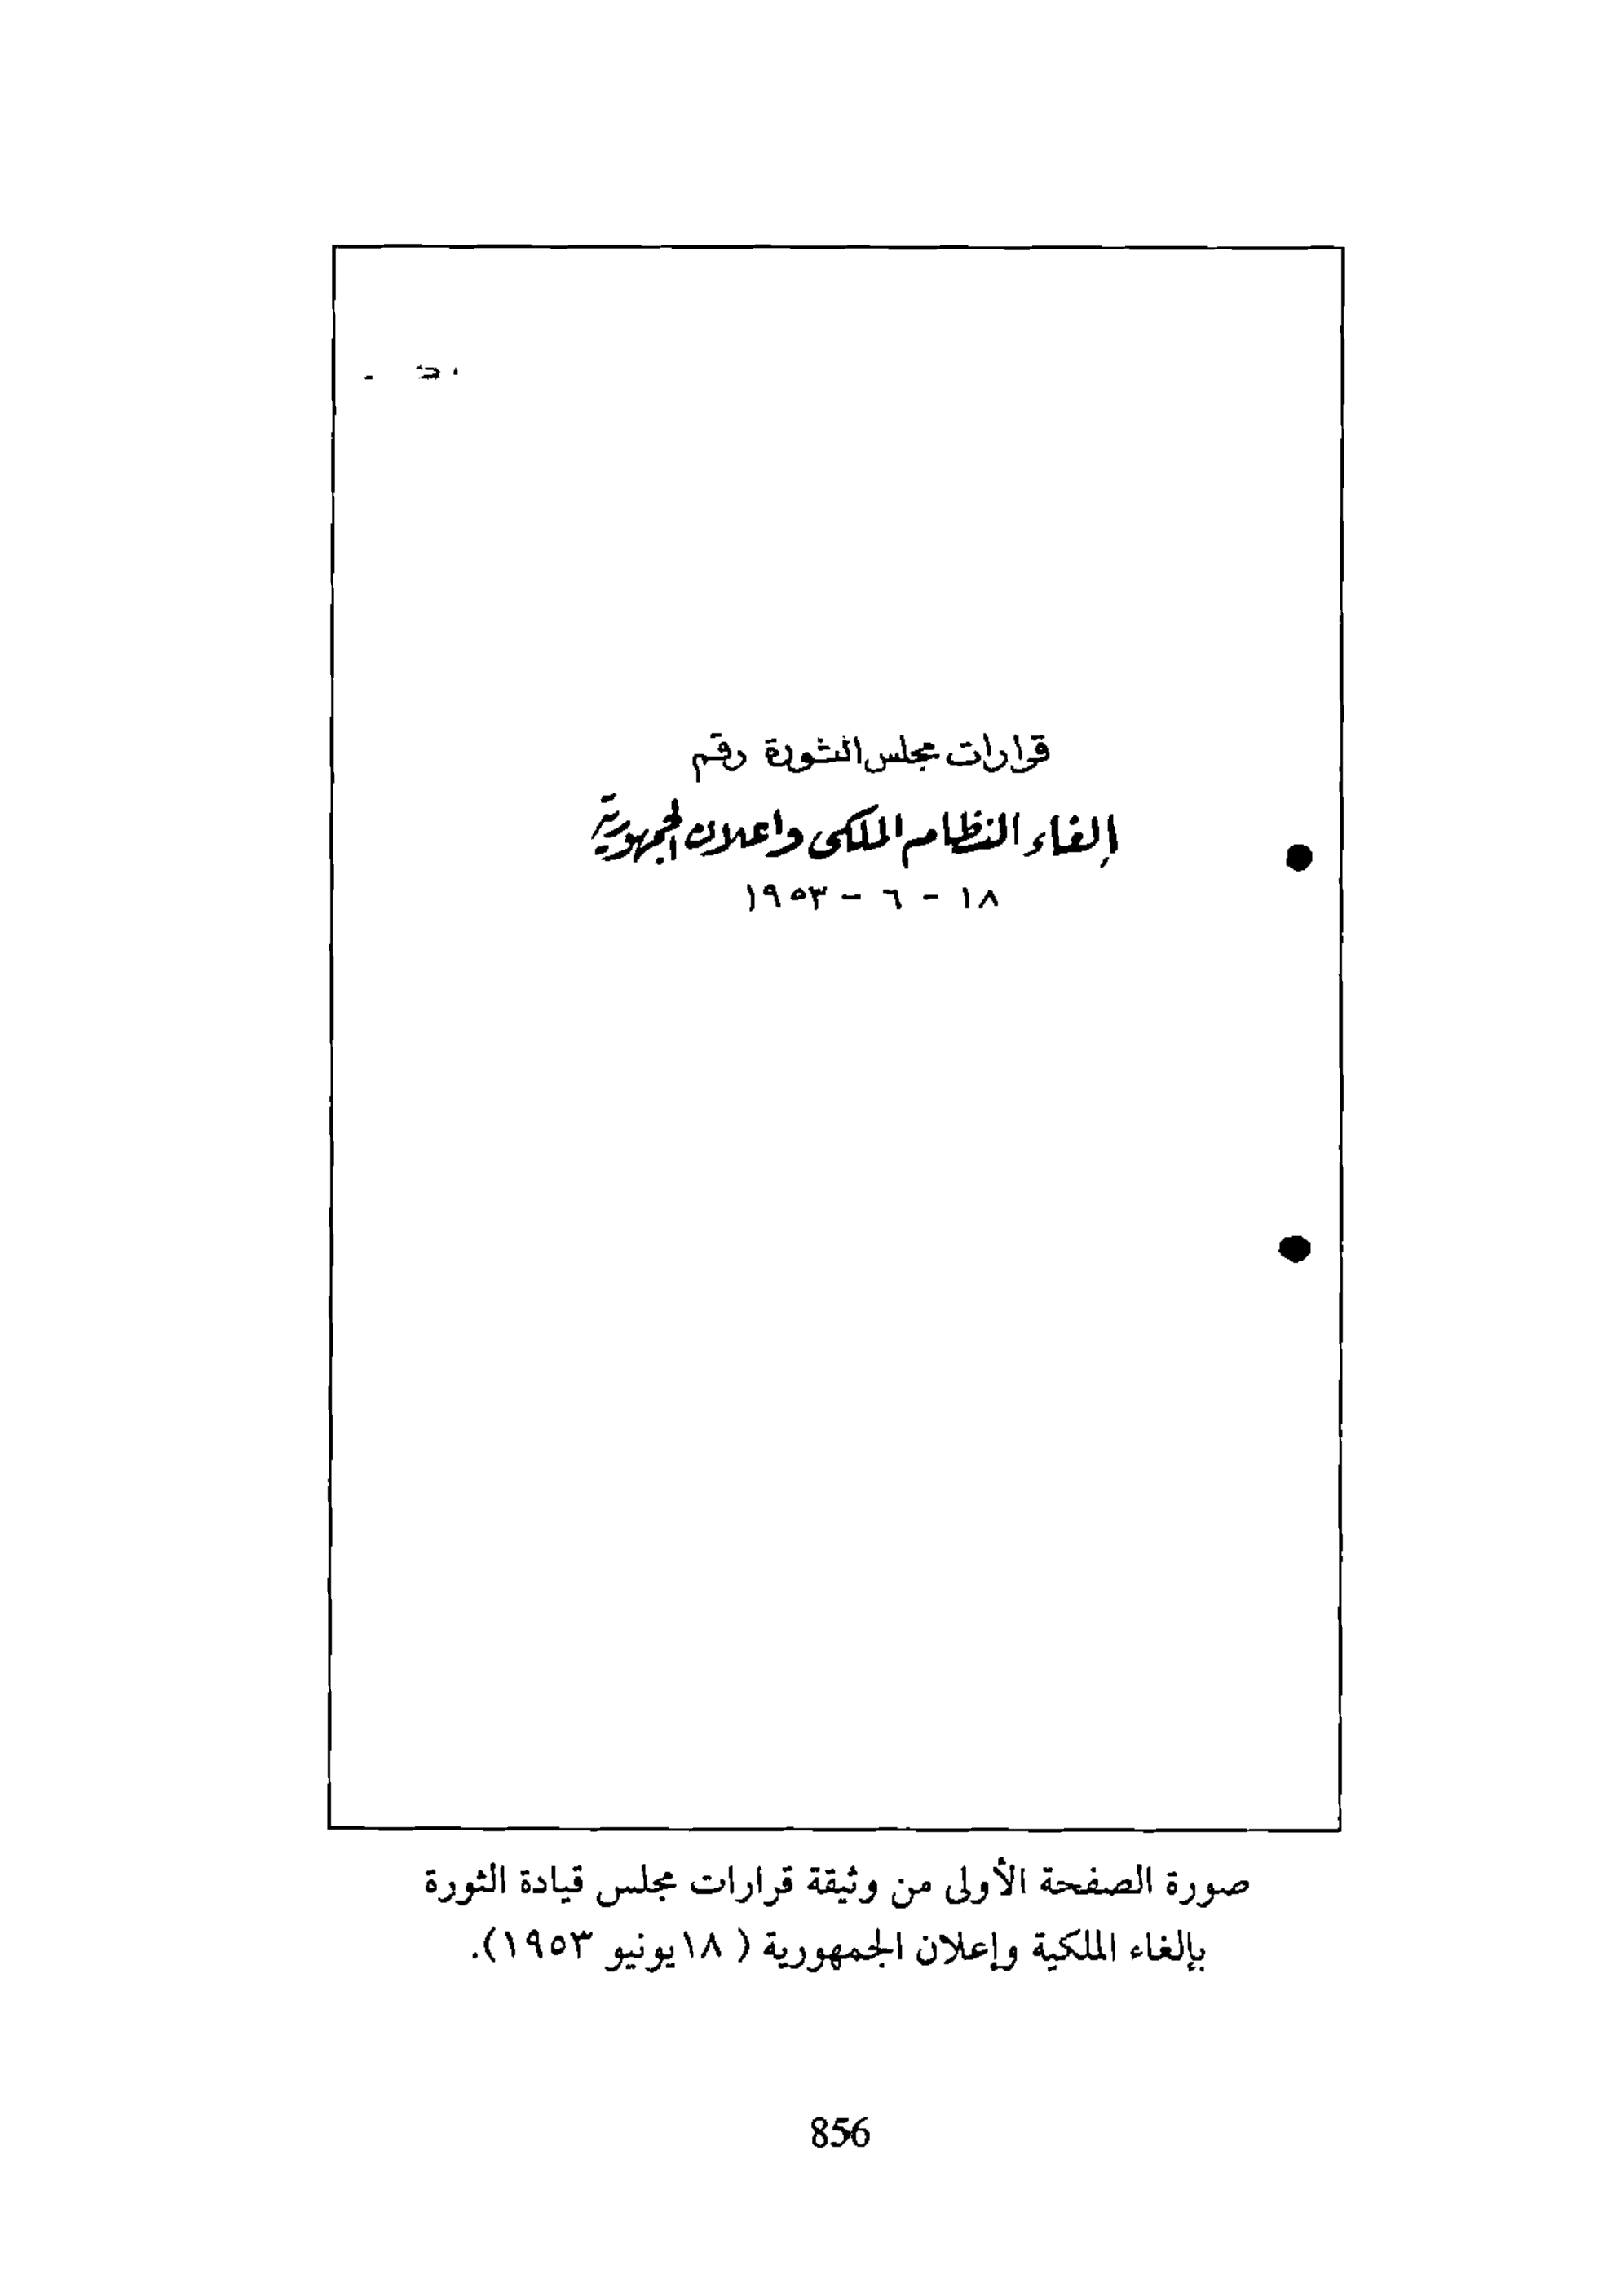 قرارات مجلس الثورة رقم
إلغاء النظام الملكى واعلان الجمهورية
١٨ - ٦ - ١٩٥٣
صورة الصفحة الأولى من وثيقة قرارات مجلس قيادة الثورة
بإلغاء الملكية وإعلان الجمهورية ( ١٨ يونيو ١٩٥٣).
856